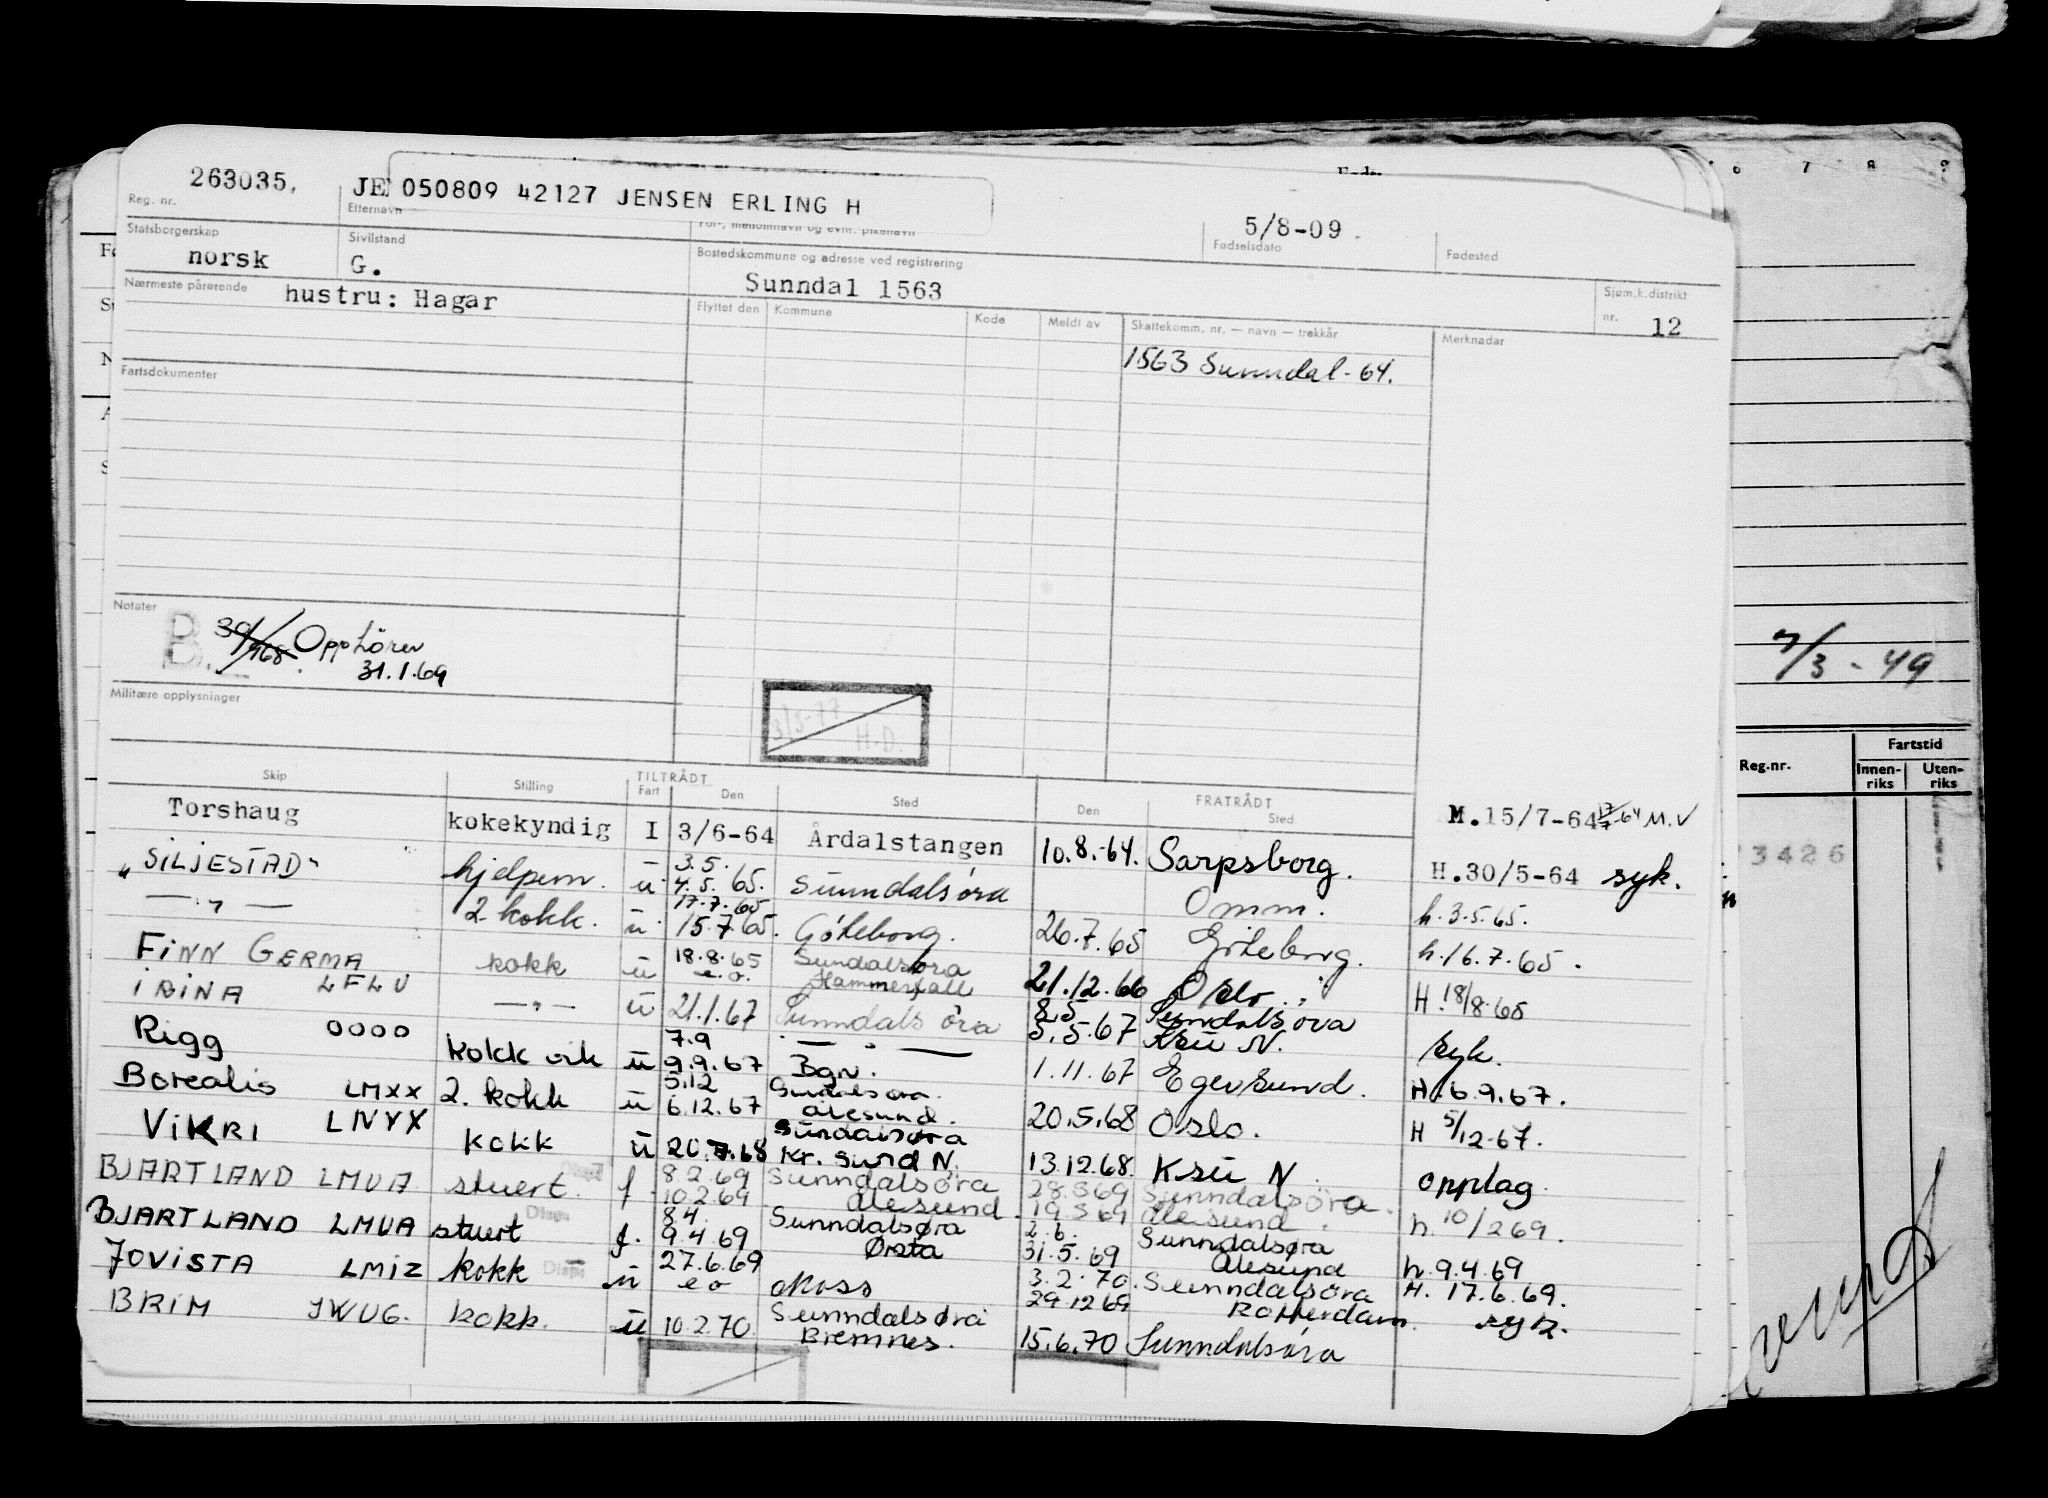 263035.
JE 050809 42127 JENSEN ERLING H
5/8-09
Reg. nr.
Etternavn
For-, mellomnavn og evnt. pikenavn
Fødselsdato
Fødested
Statsborgerskap
norsk
Sivilstand
G.
Bostedskommune og adresse ved registrering
Sunndal 1563
Sjøm.k.distrikt
nr. 12
Nærmeste pårørende
hustru: Hagar
Flyttet den
Kommune
Kode
Meldt av
Skattekomm. nr. — navn — trekkår
Merknader
1563 Sunndal-64.
Fartsdokumenter
Notater
Opphører
31.1.69
Militære opplysninger
3/5-77
H.D.
7/3-49
Reg.nr.
Fartstid
Innen-riks
Uten-riks
3426
Skip
Stilling
TILTRÅDT
Fart
Den
Sted
FRATRÅDT
Den
Sted
Torshaug kokekyndig I 3/6-64 Årdalstangen 10.8.-64. Sarpsborg. M.15/7-64
H.30/5-64 syk.
"SILJESTAD" hjelpem. u 3.5. 4.5.65. Sunndalsöra Omm. h.3.5.65.
— " — 2. kokk. u 17.7.65 15.7.65. Göteborg. 26.7.65 Göteborg. h.16.7.65.
FINN GERMA LFLV kokk u 18.8.65 e.o. Sundalsöra Hammerfall 21.12.66 Oslo H 18/8.65
IRINA — " — u 21.1.67 Sunndalsöra 8.5 5.5.67 Sundalsöra KSU N. syk.
Rigg OOOO kokk u 7.9 9.9.67 — " — Bgn. 1.11.67 Egersund. H.6.9.67.
Borealis LMXX 2. kokk u 5.12 6.12.67 Sundalsøra. Ålesund. 20.5.68 Oslo. H 5/12-67.
VIKRI LNYX kokk u 20.7.68 Sundalsøra Kr. Sund N. 13.12.68. KSU N opplag.
BJARTLAND LMUA stuert. f. 8.2.69 10.2.69 Sunndalsöra Ålesund. 28.369 19.369 Sunndalsöra. Ålesund. h. 10/269.
BJARTLAND LMUA stuert f. 8.4. 9.4.69 Sunndalsøra Ørsta 2.6. 31.5.69 Sunndalsøra Ålesund h.9.4.69
JOVISTA LMIZ kokk u 27.6.69 e o Moss 3.2.70. 29.1269 Sunndalsöra Rotterdam. H. 17.6.69. syk.
BRIM JWUG. kokk. u 10.2.70 Sunndalsöra Bremnes. 15.6.70 Sunndalsöra